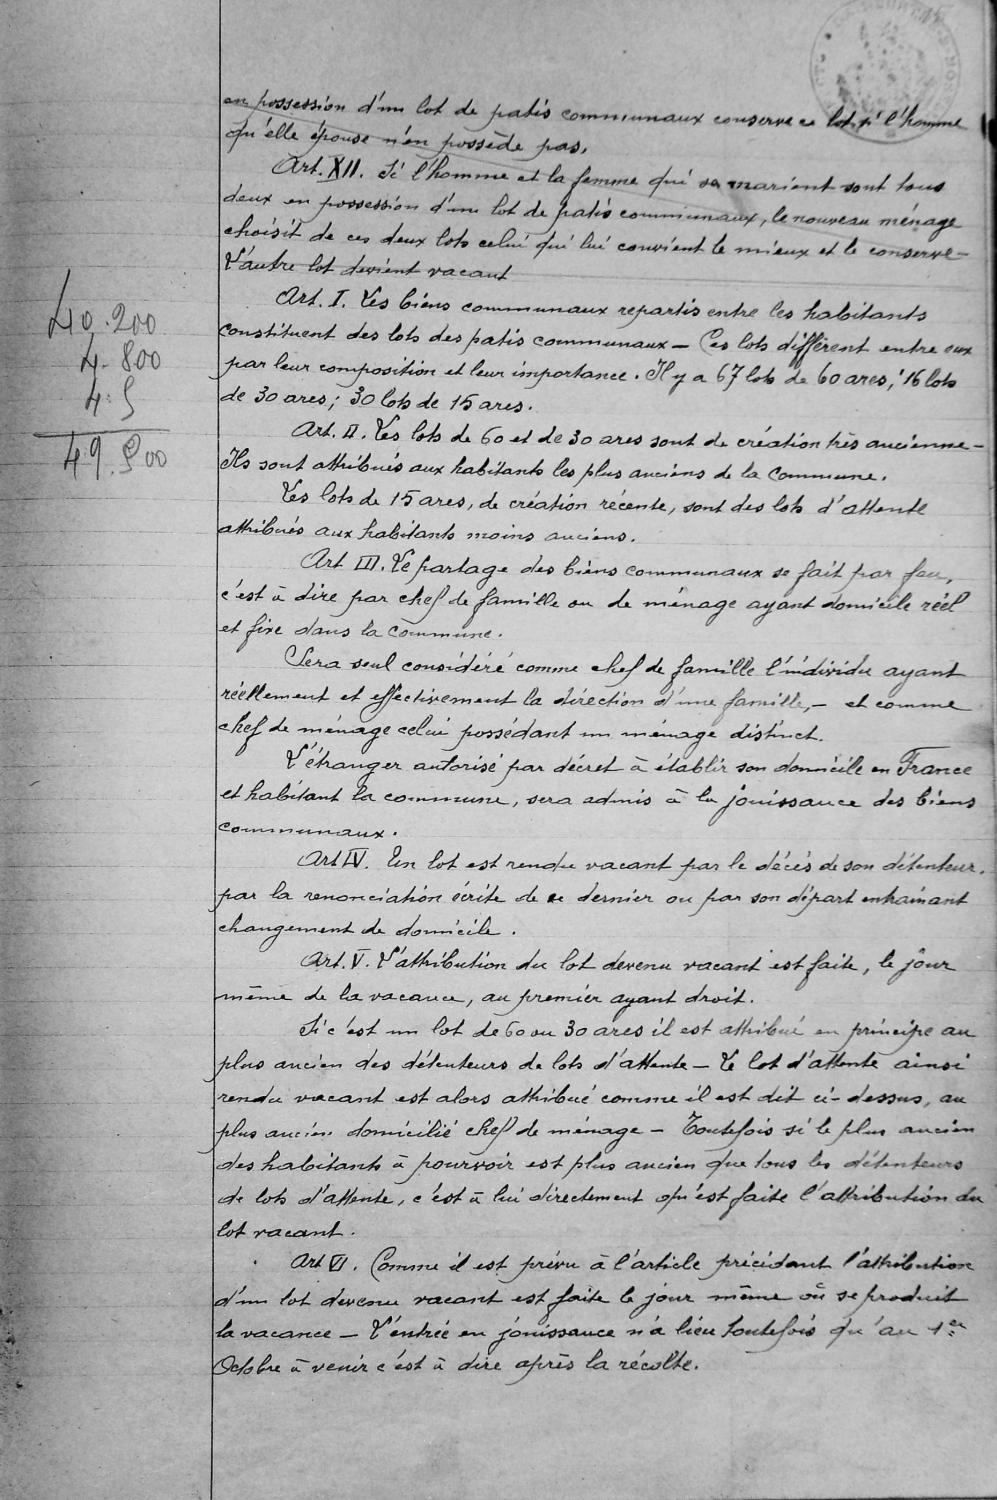 en possession d'un lot de patis communaux conserve ce lot si l'homme
qu'elle épouse n'en possède pas.
Art. XII. Si l'homme et la femme qui se marient sont tous
deux en possession d'un lot de patis communaux, le nouveau ménage
choisit de ces deux lots celui qui lui convient le mieux et le conserve -
L'autre lot devient vacant
Art. I. Les biens communaux repartis entre les habitants
constituent des lots des patis communaux - Ces lots diffèrent entre eux
par leur composition et leur importance. Il y a 67 lots de 60 ares; 16 lots
de 30 ares; 30 lots de 15 ares.
Art. II. Les lots de 60 et de 30 ares sont de création très ancienne -
Ils sont attribués aux habitants les plus anciens de la Commune.
Les lots de 15 ares, de création récente, sont des lots d'attente
attribués aux habitants moins anciens.
Art III. Le partage des biens communaux se fait par feu,
c'est à dire par chef de famille ou de ménage ayant domicile réel
et fixe dans la commune.
Sera seul considéré comme chef de famille l'individu ayant
réellement et effectivement la direction d'une famille, - et comme
chef de ménage celui possédant un ménage distinct.
L'étranger autorisé par décret à établir son domicile en France
et habitant la commune, sera admis à la jouissance des biens
communaux.
Art IV. Un lot est rendu vacant par le décès de son détenteur.
par la renonciation écrite de ce dernier ou par son départ entrainant
changement de domicile.
Art. V. L'attribution du lot devenu vacant est faite, le jour
même de la vacance, au premier ayant droit.
Si c'est un lot de 60 ou 30 ares il est attribué en principe au
plus ancien des détenteurs de lots d'attente - Le lot d'attente ainsi
rendu vacant est alors attribué comme il est dit ci-dessus, au
plus ancien domicilié chef de ménage - Toutefois si le plus ancien
des habitants à pourvoir est plus ancien que tous les détenteurs
de lots d'attente, c'est à lui directement qu'est faite l'attribution du
lot vacant.
Art VI. Comme il est prévu à l'article précédent l'attribution
d'un lot devenu vacant est faite le jour même où se produit
la vacance - L'entrée en jouissance n'a lieu toutefois qu'au 1er
Octobre à venir c'est à dire après la récolte.
40.200
4.800
4.5
49.500